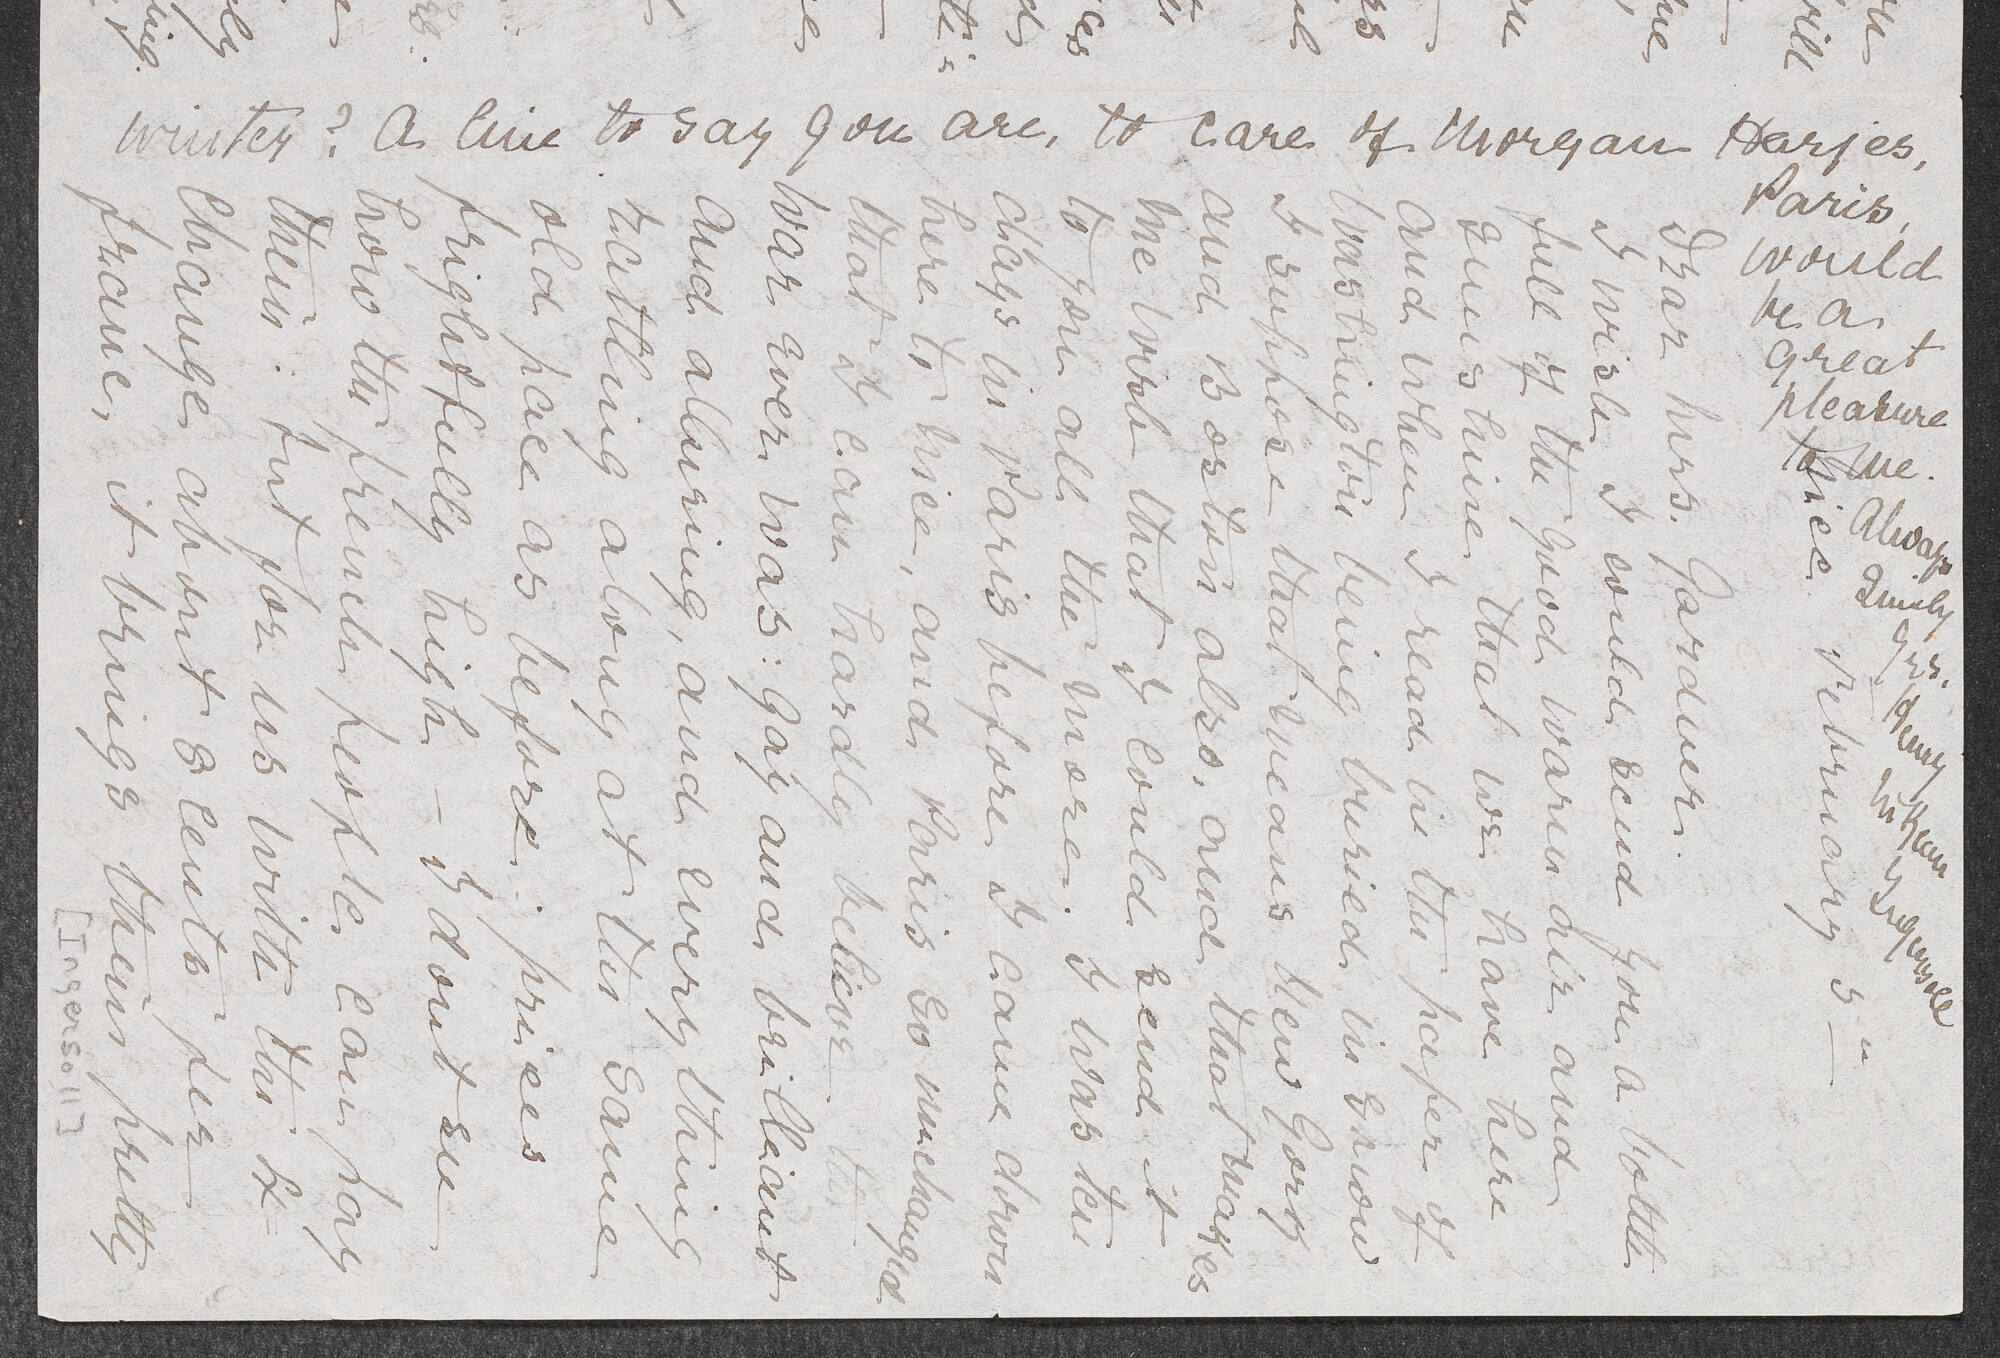 Nice. February 5"
Dear Mrs. Gardner.
I wish I could send you a bottle
full of the good warm air and
sunshine that we have here
and when I read in the paper of
Washington being buried in snow
I suppose that means New York
and Boston also, and that makes
me wish that I could send it
to you all the more. I was ten
days in Paris before I came down
here to Nice, and Paris so unchanged
that I can hardly believe the
war ever was: gay and brilliant
and alluring, and every thing
rattling along at the same
old pace as before: prices
frightfully high – I dont see
how the French people can pay
them: but for us with the Ex-
change about 8 cents per
franc, it brings them pretty
winter? A line to say you are, to care of Morgan Harjes,
Paris,
would
be a
great
pleasure
to me.
Always
yrs.
Henry
[Ingersoll]